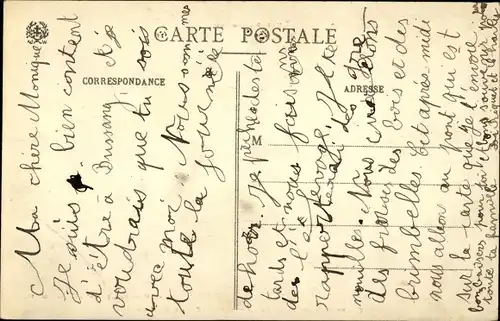 CARTE POSTALE
CORRESPONDANCE
ADRESSE
M
Ma chère Monique
Je suis bien content
d'être à Bussang. Je
voudrais que tu sois
avec moi. Nous sommes
toute la journée
dehors. Je pêche des té
tards et nous faisons
de l'élevage. Je te
rapporterai des gre
nouilles. Nous cueillons
des fraises des bois et des
brimbelles. Cet après-midi
nous allons au pont qui est
sur la carte que je t'envoie
bons baisers
toute la famille